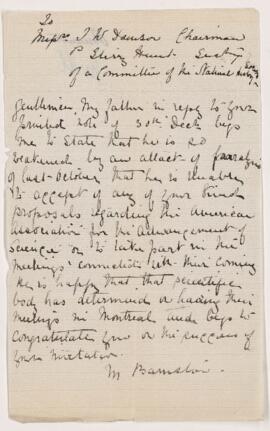 To
Messrs. J W Dawson Chairman
P Sterry Hunt Secty
of a Committee of the Natural
Gentlemen My father in reply to your
printed note of 30th Decr begs
me to State that he is so
weakened by an attack of paralysis
of last October that he is unable
to accept of any of your kind
proposals regarding the American
Association for the Advancement of
Science or to take part in the
meetings connected with their coming
He is happy that that scientific
body has determined on having their
meetings in Montreal and begs to
Congratulate you on the success of
your invitation.
M Barnston